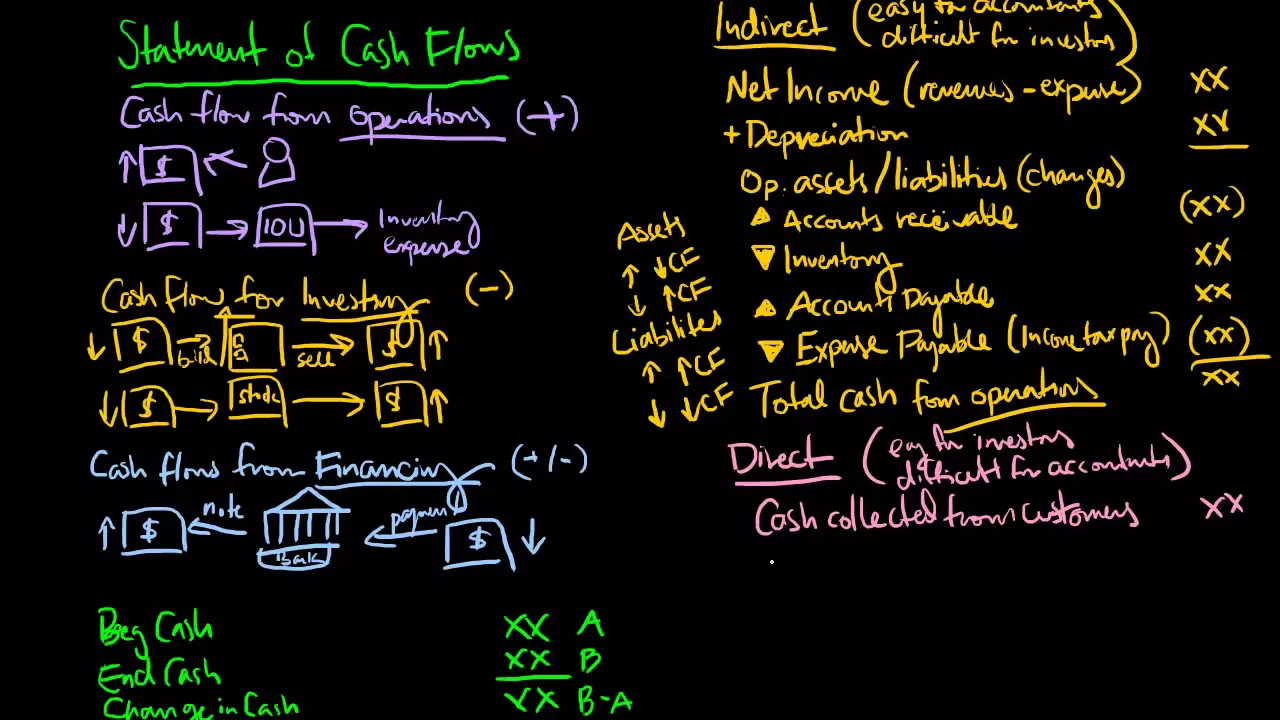 Statement of Cash Flows
Cash flow from operations (+)
↑ $
↓ $ → IOU → Inventory
expense
Cash flow for Investing (-)
↓ $ build sell $ ↑
↓ $ → stock → $ ↑
Cash flows from Financing (+/-)
↑ $ note Bank payment $ ↓
Beg Cash XX A
End Cash XX B
Change in Cash XX B-A
Indirect (easy for accountants
difficult for investors)
Net Income (revenues - expense) XX
+ Depreciation XX
Op. assets/liabilities (changes)
▲ Accounts receivable (XX)
▼ Inventory XX
▲ Accounts Payable XX
▼ Expense Payable (Income tax pay) (XX)
Total cash from operations XX
Assets
↑ ↓CF
↓ ↑CF
Liabilites
↑ ↑CF
↓ ↓CF
Direct (easy for investors
difficult for accountants)
Cash collected from customers XX